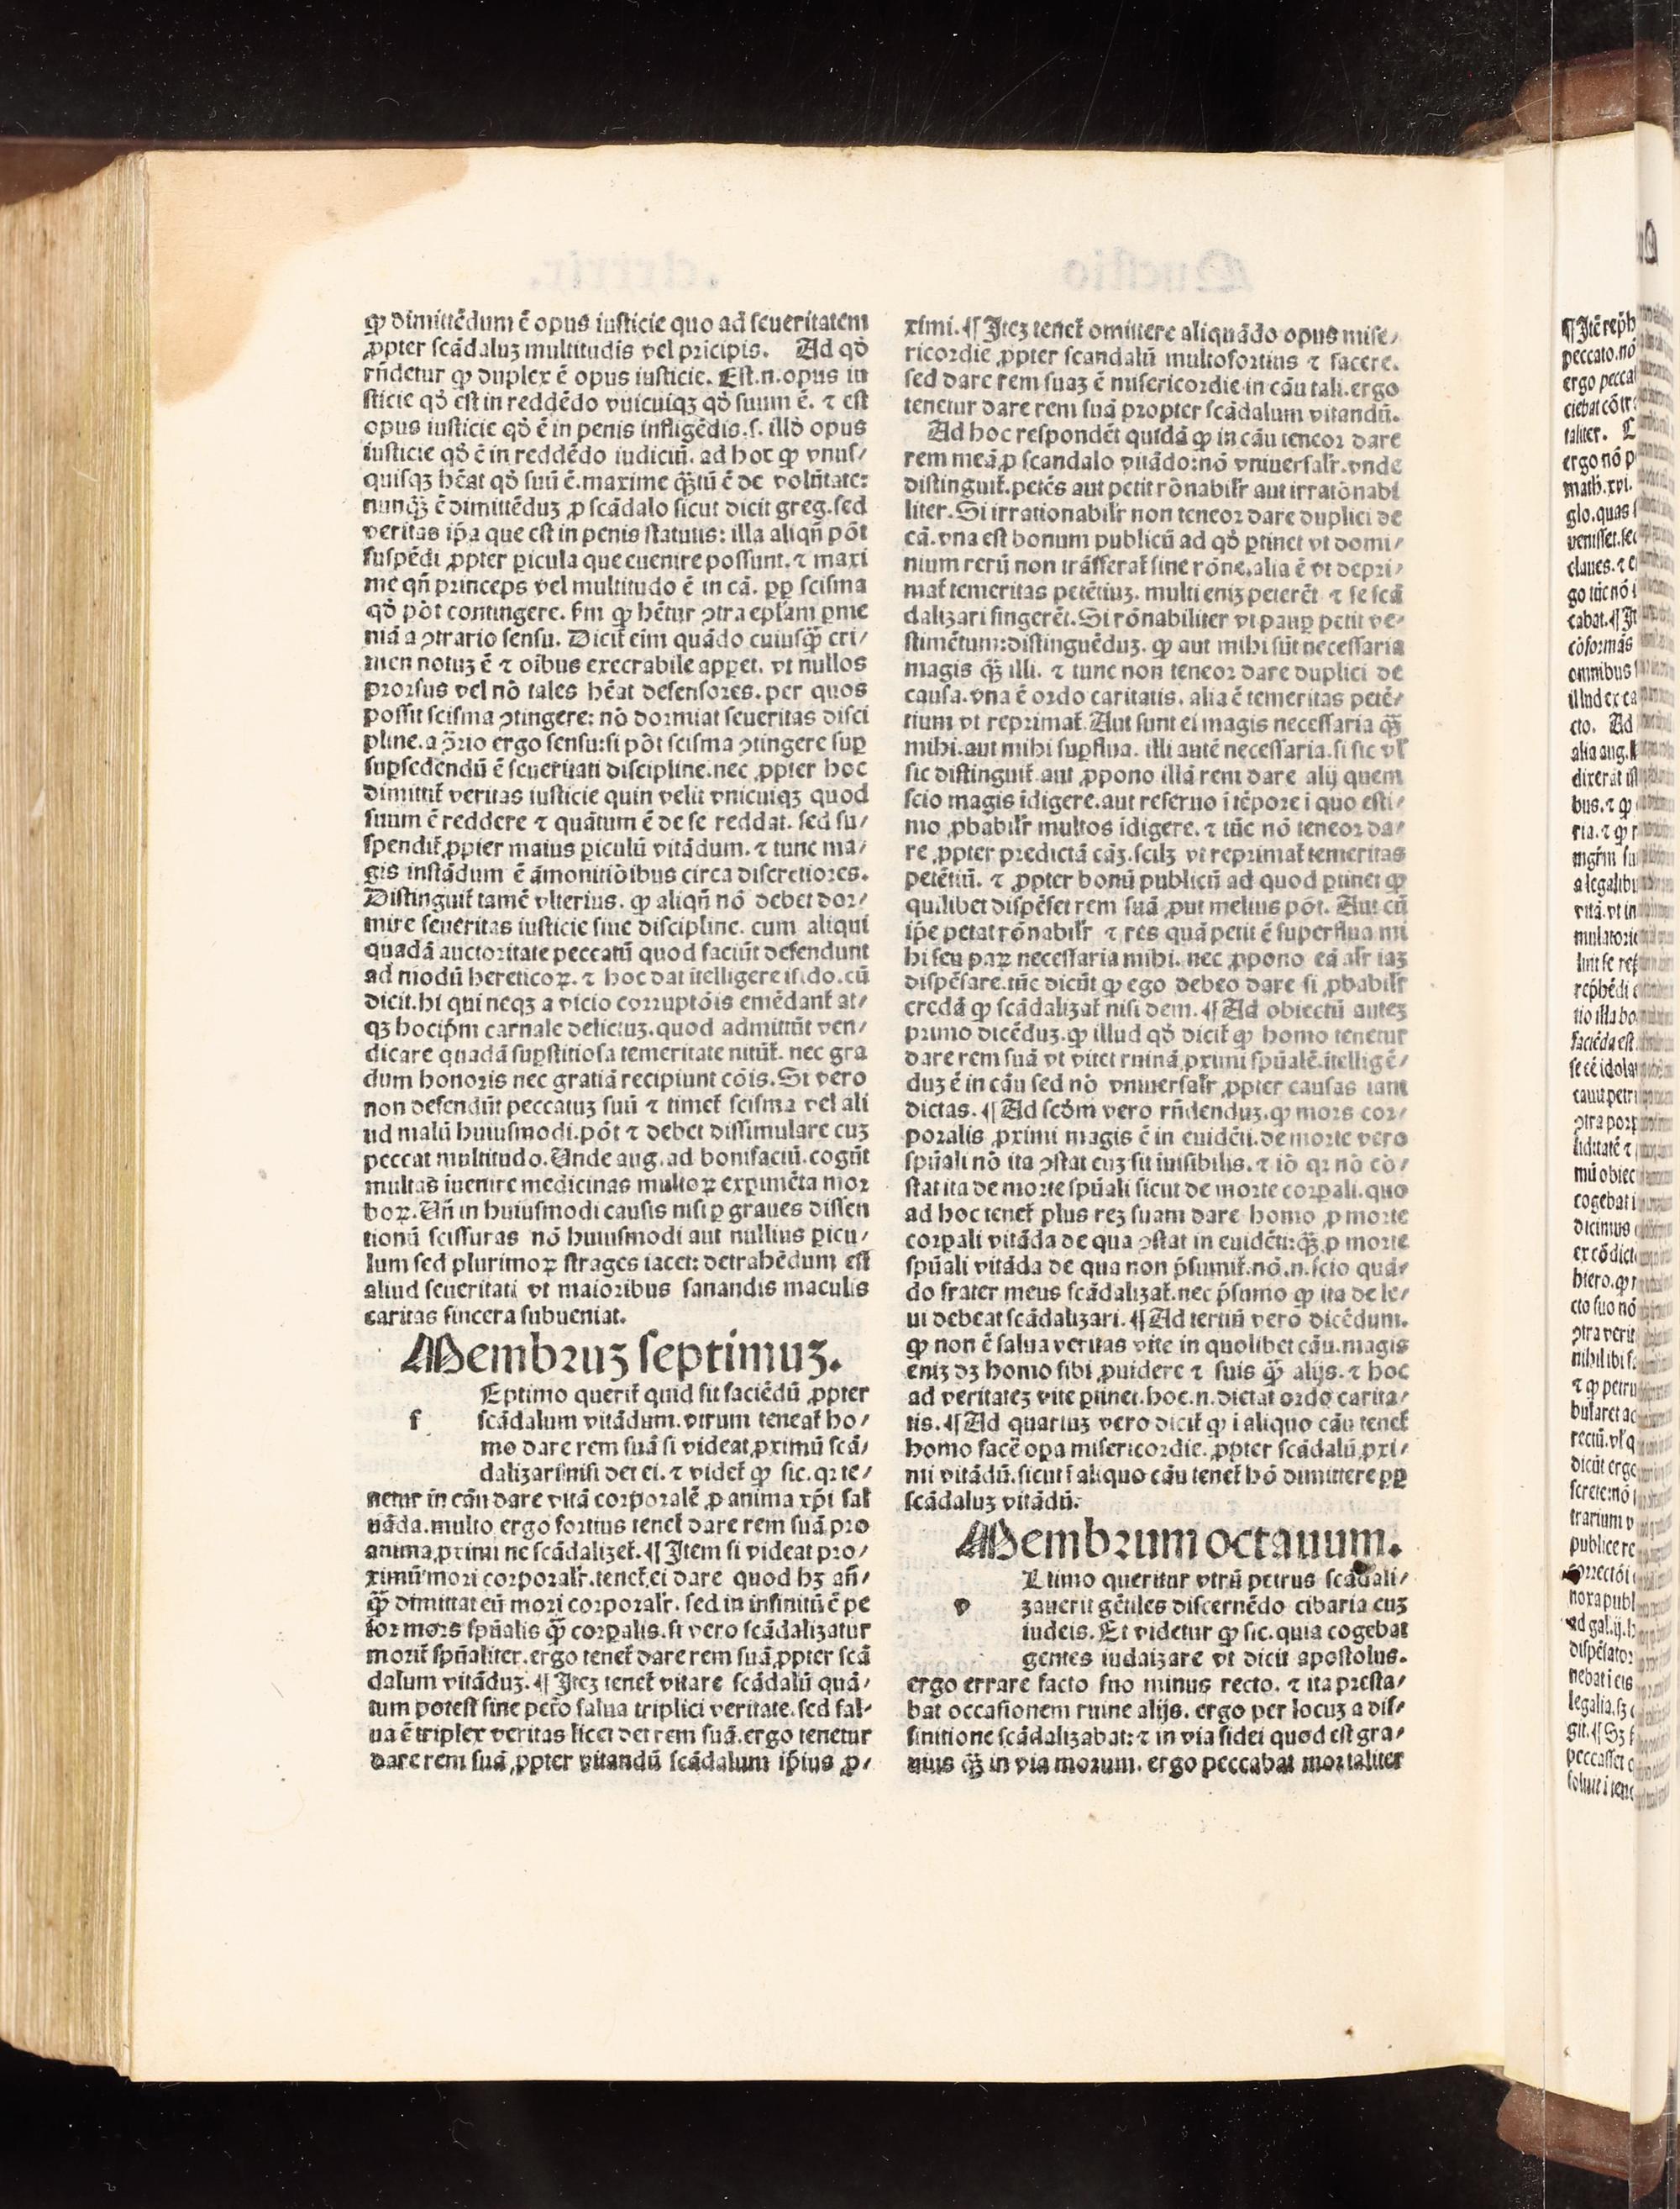 ꝙ dimittẽdum ẽ opus iusticie quo ad seueritatem
ꝓpter scãdaluȝ multitudis vel pricipis. Ad qđ
rñdetur ꝙ duplex ẽ opus iusticie. Est.n.opus iu
sticie qđ est in reddẽdo vnicuiqȝ qđ suum ẽ. ⁊ est
opus iusticie qđ ẽ in penis infligẽdis.s. illđ opus
iusticie qđ ẽ in reddẽdo iudiciũ. ad hoc ꝙ vnus/
quisqȝ hẽat qđ suũ ẽ.maxime ꝙ̃tũ ẽ de volũtate:
nunꝙ̃ ẽ dimittẽduȝ ꝓ scãdalo sicut dicit greg.sed
veritas ip̃a que est in penis statutis: illa aliqñ põt
suspẽdi ꝓpter ꝑicula que euenire possunt.⁊ maxi
me qñ princeps vel multitudo ẽ in cã. ꝓꝑ scisma
qđ põt contingere. ẜm ꝙ hẽtur ꝯtra epl̃am ꝑme
niã a ꝯtrario sensu. Dicit̃ eim quãdo cuiusꝙ̃ cri/
men notuȝ ẽ ⁊ oĩbus execrabile apꝑet. vt nullos
prorsus vel nõ tales hẽat defensores. per quos
possit scisma ꝯtingere: nõ dormiat seueritas disci
pline.a ꝯ̃rio ergo sensu:si põt scisma ꝯtingere suꝑ
suꝑsedendũ ẽ seueritati discipline.nec ꝓpter hoc
dimittit̃ veritas iusticie quin velit vnicuiqȝ quod
suum ẽ reddere ⁊ quãtum ẽ de se reddat. sed su/
spendit̃ ꝓpter maius ꝑiculũ vitãdum. ⁊ tunc ma/
gis instãdum ẽ ãmonitiõibus circa discretiores.
Distinguit̃ tamẽ vlterius. ꝙ aliqñ nõ debet dor/
mire seueritas iusticie siue discipline. cum aliqui
quadã auctoritate peccatũ quod faciũt defendunt
ad modũ hereticoꝝ. ⁊ hoc dat ĩtelligere isido.cũ
dicit.hi qui neqȝ a vicio corruptõis emẽdant̃ at/
qȝ hocip̃m carnale delictuȝ.quod admittũt ven/
dicare quadã suꝑstitiosa temeritate nitũt̃. nec gra
dum honoris nec gratiã recipiunt cõis.Si vero
non defendũt peccatuȝ suũ ⁊ timet̃ scisma vel ali
ud malũ huiusmodi.põt ⁊ debet dissimulare cuȝ
peccat multitudo.Unde aug.ad bonifaciũ.cogũt
multas ĩuenire medicinas multoꝝ exꝑimẽta mor
boꝝ.Uñ in huiusmodi causis nisi ꝑ graues dissen
tionũ scissuras nõ huiusmodi aut nullius ꝑicu/
lum sed plurimoꝝ strages iacet: detrahẽdum est
aliud seueritati vt maioribus sanandis maculis
caritas sincera subueniat.
Membruȝ septimuȝ.
Eptimo querit̃ quid sit faciẽdũ ꝓpter
s scãdalum vitãdum.vtrum teneat̃ ho/
mo dare rem suã si videat ꝓximũ scã/
dalizari nisi det ei. ⁊ videt̃ ꝙ sic.qꝛ te/
netur in cãu dare vitã corporalẽ ꝓ anima xp̃i sal
uãda.multo ergo fortius tenet̃ dare rem suã pro
anima ꝓximi ne scãdalizet̃.¶ Item si videat pro/
ximũ mori corporalr̃.tenet̃ ei dare quod hȝ añ/
ꝙ̃ dimittat eũ mori corporalr̃. sed in infinitũ ẽ pe
ior mors spũalis ꝙ̃ corꝑalis.si vero scãdalizatur
morit̃ spũaliter.ergo tenet̃ dare rem suã ꝓpter scã
dalum vitãduȝ.¶ Iteȝ tenet̃ vitare scãdalũ quã/
tum potest sine petõ salua triplici veritate.sed sal-
ua ẽ triplex veritas licet det rem suã.ergo tenetur
dare rem suã ꝓpter vitandũ scãdalum ip̃ius ꝓ/
ximi.¶ Iteȝ tenet̃ omittere aliquãdo opus mise/
ricordie ꝓpter scandalũ multofortius ⁊ facere.
sed dare rem suaȝ ẽ misericordie in cãu tali.ergo
tenetur dare rem suã propter scãdalum vitandũ.
Ad hoc respondẽt quidã ꝙ in cãu teneor dare
rem meã ꝓ scandalo vitãdo:nõ vniuersalr̃.vnde
distinguit̃.petẽs aut petit rõnabilr̃ aut irratõnabi
liter.Si irrationabilr̃ non teneor dare duplici de
cã.vna est bonum publicũ ad qđ ꝑtinet vt domi/
nium rerũ non trãsferat̃ sine rõne.alia ẽ vt depri/
mat̃ temeritas petẽtiuȝ. multi eniȝ peterẽt ⁊ se scã
dalizari fingerẽt.Si rõnabiliter vt pauꝑ petit ve-
stimẽtum:distinguẽduȝ. ꝙ aut mihi sũt necessaria
magis ꝙ̃ illi. ⁊ tunc non teneor dare duplici de
causa.vna ẽ ordo caritatis. alia ẽ temeritas petẽ/
tium vt reprimat̃.Aut sunt ei magis necessaria ꝙ̃
mihi.aut mihi suꝑflua. illi autẽ necessaria.si sic vl̃
sic distinguit̃.aut ꝓpono illã rem dare alij quem
scio magis ĩdigere.aut reseruo ĩ tẽpore ĩ quo esti/
mo ꝓbabilr̃ multos ĩdigere. ⁊ tũc nõ teneor da/
re ꝓpter predictã cãȝ.scilȝ vt reprimat̃ temeritas
petẽtiũ. ⁊ ꝓpter bonũ publicũ ad quod ꝑtinet ꝙ
quilibet dispẽset rem suã ꝓut melius põt. Aut cũ
ip̃e petat rõnabilr̃ ⁊ res quã petit ẽ superflua mi
hi seu paꝝ necessaria mihi. nec ꝓpono eã alr̃ iaȝ
dispẽsare.tũc dicũt ꝙ ego debeo dare si ꝓbabilr̃
credã ꝙ scãdalizat̃ nisi dem.¶ Ad obiectũ auteȝ
primo dicẽduȝ.ꝙ illud qđ dicit̃ ꝙ homo tenetur
dare rem suã vt vitet ruinã ꝓximi spũalẽ.ĩtelligẽ/
duȝ ẽ in cãu sed nõ vniuersalr̃ ꝓpter causas iam
dictas.¶ Ad scđm vero rñdenduȝ.ꝙ mors cor/
poralis ꝓximi magis ẽ in euidẽti.de morte vero
spũali nõ ita ꝯstat cuȝ sit ĩuisibilis.⁊ iõ qꝛ nõ cõ/
stat ita de morte spũali sicut de morte corꝑali.quo
ad hoc tenet̃ plus reȝ suam dare homo ꝓ morte
corꝑali vitãda de qua ꝯstat in euidẽti:ꝙ̃ ꝓ morte
spũali vitãda de qua non p̃sumit̃.nõ.n.scio quã-
do frater meus scãdalizat̃.nec p̃sumo ꝙ ita de le/
ui debeat scãdalizari.¶ Ad tertiũ vero dicẽdum.
ꝙ non ẽ salua veritas vite in quolibet cãu.magis
eniȝ dȝ homo sibi ꝓuidere ⁊ suis ꝙ̃ alijs.⁊ hoc
ad veritateȝ vite ꝑtinet.hoc.n.dictat ordo carita/
tis.¶ Ad quartuȝ vero dicit̃ ꝙ ĩ aliquo cãu tenet̃
homo facẽ oꝑa misericordie. ꝓpter scãdalũ ꝓxi/
mi vitãdũ.sicut ĩ aliquo cãu tenet̃ hõ dimittere ꝓꝑ
scãdaluȝ vitãdũ.
Membrum octauum.
Ltimo queritur vtrũ petrus scãdali/
v zauerit gẽtiles discernẽdo cibaria cuȝ
iudeis. Et videtur ꝙ sic.quia cogebat
gentes iudaizare vt dicit apostolus.
ergo errare facto suo minus recto. ⁊ ita presta/
bat occasionem ruine alijs. ergo per locuȝ a dif/
finitione scãdalizabat:⁊ in via fidei quod est gra/
uius ꝙ̃ in via morum. ergo peccabat mortaliter